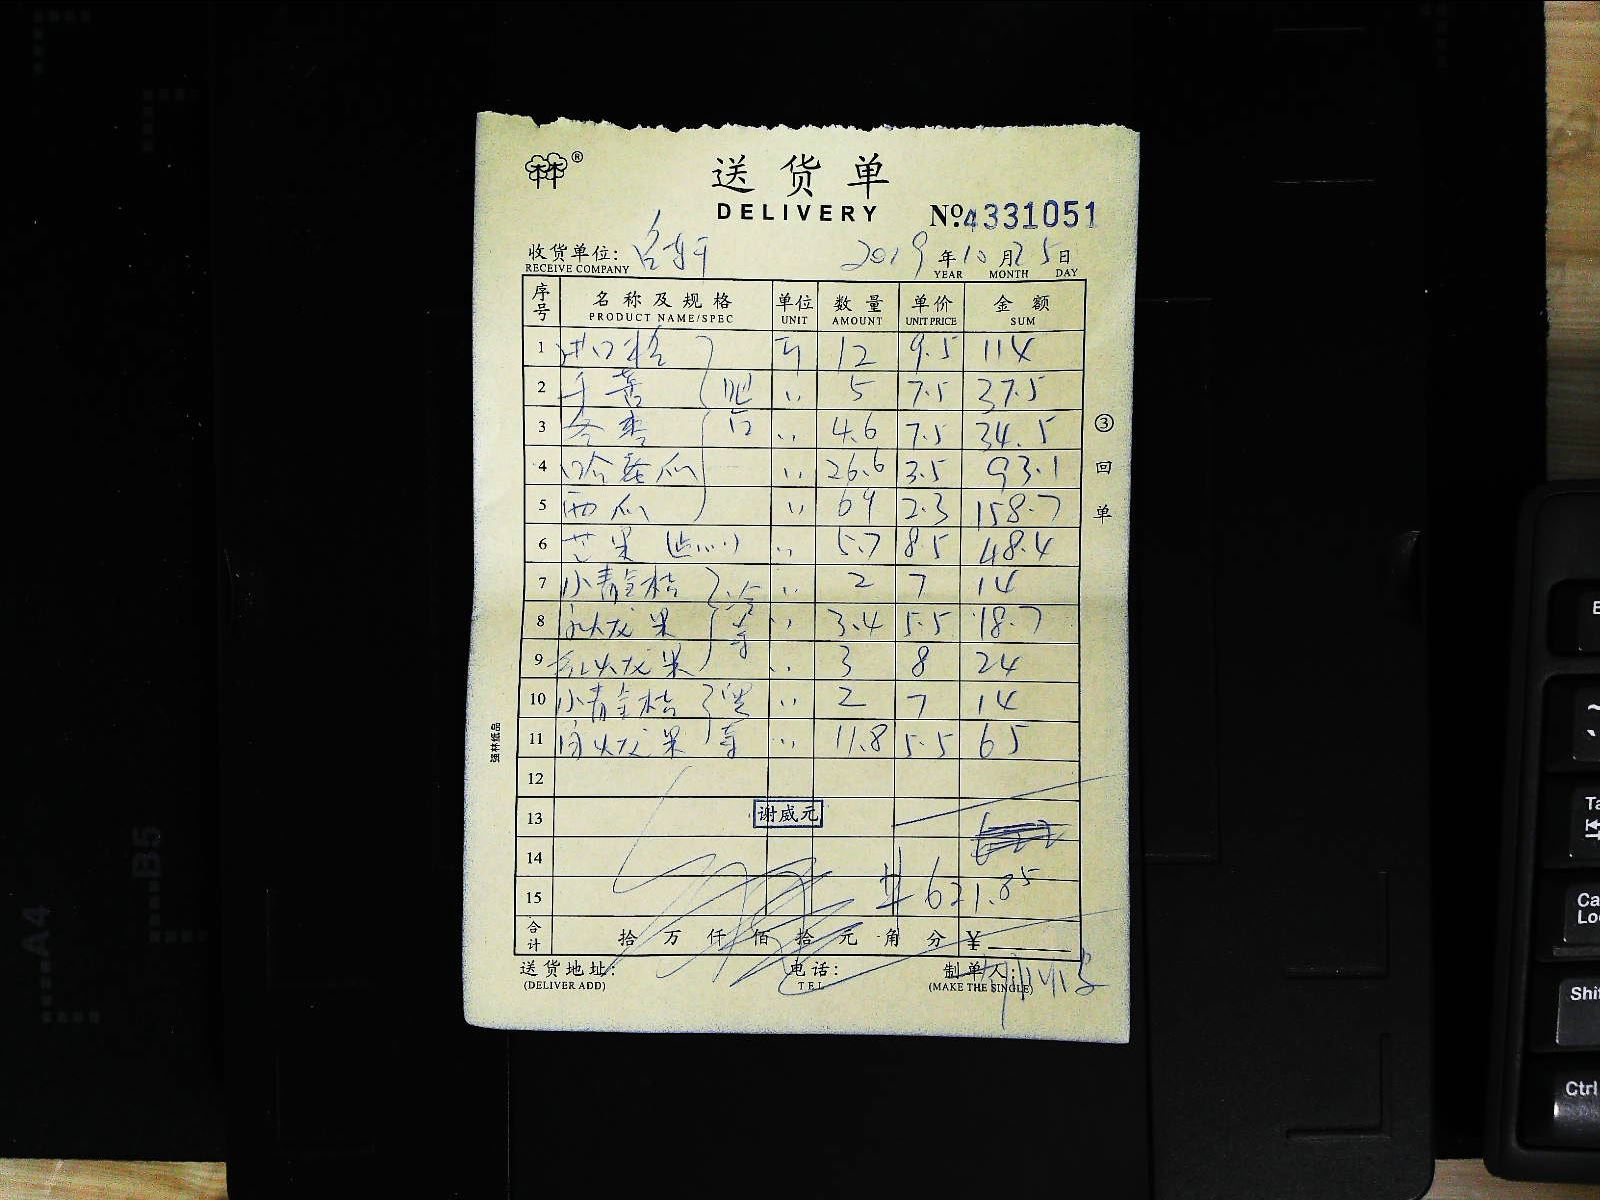 林®
送货单
DELIVERY
№.4331051
收货单位:
RECEIVE COMPANY
2019年10月25日
YEAR MONTH DAY
序号 名称及规格 单位 数量 单价 金额
PRODUCT NAME/SPEC UNIT AMOUNT UNIT PRICE SUM
1 进口 斤 12 9.5 114
2 5 7.5 37.5
3 冬枣 〃 4.6 7.5 34.5
4 哈蜜瓜 〃 26.6 3.5 93.1
5 西瓜 〃 69 2.3 158.7
6 芒果 〃 5.7 8.5 48.4
7 小青金桔 〃 2 7 14
8 白火龙果 〃 3.4 5.5 18.7
9 红火龙果 〃 3 8 24
10 小青金桔 〃 2 7 14
11 白火龙果 〃 11.8 5.5 65
12
13 谢威元
14
15 共 621.85
合计 拾 万 仟 佰 拾 元 角 分 ¥
送货地址: 电话: 制单人:
(DELIVER ADD) TEL (MAKE THE SINGLE)
③回单
强林纸品
A4
B5
Shif
Ctrl